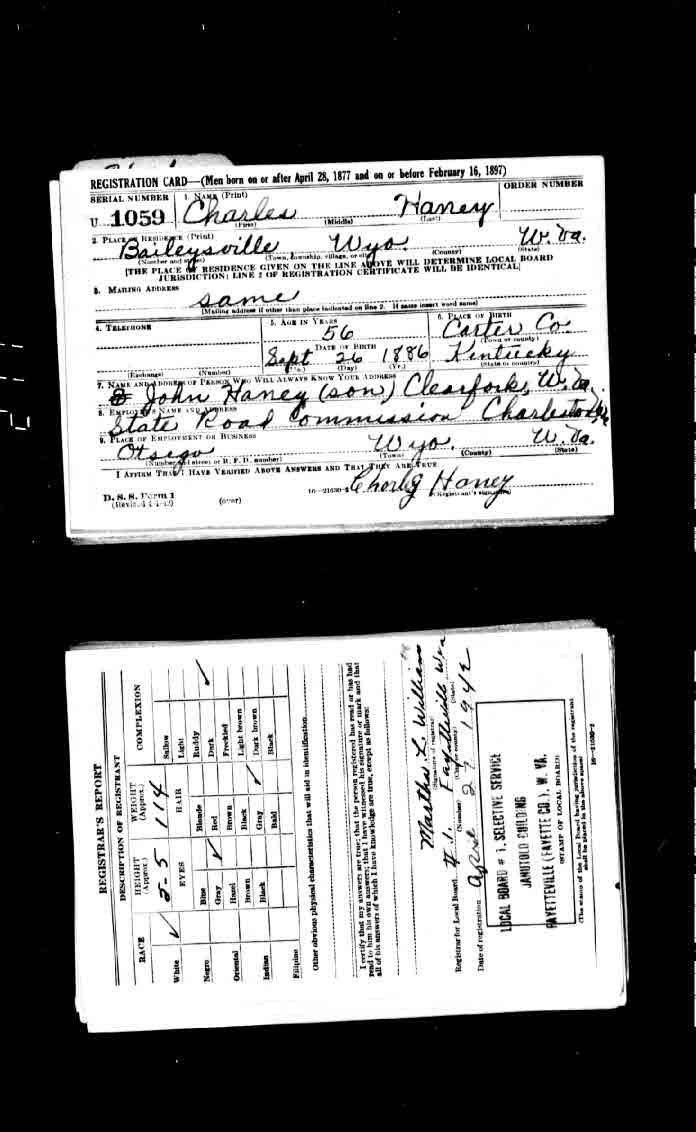 REGISTRATION CARD—(Men born on or after April 28, 1877 and on or before February 16, 1897)
SERIAL NUMBER 1. NAME (Print) ORDER NUMBER
U 1059 Charles Haney
(First) (Middle) (Last)
2. PLACE OF RESIDENCE (Print)
Baileysville, Wyo W. Va.
(Number and street) (Town, township, village, or city) (County) (State)
[THE PLACE OF RESIDENCE GIVEN ON THE LINE ABOVE WILL DETERMINE LOCAL BOARD
JURISDICTION; LINE 2 OF REGISTRATION CERTIFICATE WILL BE IDENTICAL]
3. MAILING ADDRESS
same
[Mailing address if other than place indicated on line 2. If same insert word same]
4. TELEPHONE 5. AGE IN YEARS 6. PLACE OF BIRTH
56 Carter Co.
DATE OF BIRTH (Town or county)
Sept 26 1886 Kentucky
(Exchange) (Number) (Mo.) (Day) (Yr.) (State or country)
7. NAME AND ADDRESS OF PERSON WHO WILL ALWAYS KNOW YOUR ADDRESS
John Haney (son) Clearfork, W. Va.
8. EMPLOYER'S NAME AND ADDRESS
State Road Commission Charleston
9. PLACE OF EMPLOYMENT OR BUSINESS
Otsego Wyo. W. Va.
(Number and street or R. F. D. number) (Town) (County) (State)
I AFFIRM THAT I HAVE VERIFIED ABOVE ANSWERS AND THAT THEY ARE TRUE
D. S. S. Form 1 16—21630-2 Haney
(Revised 4-1-42) (over) (Registrant's signature)
REGISTRAR'S REPORT
DESCRIPTION OF REGISTRANT
RACE HEIGHT (Approx.) WEIGHT (Approx.) COMPLEXION
5-5 114
White ✓ EYES HAIR Sallow
Light
Negro Blue Blonde Ruddy
Gray ✓ Red Dark ✓
Oriental Hazel Brown Freckled
Brown Black Light brown
Indian Black Gray ✓ Dark brown
Bald Black
Filipino
Other obvious physical characteristics that will aid in identification
I certify that my answers are true; that the person registered has read or has had
read to him his own answers; that I have witnessed his signature or mark and that
all of his answers of which I have knowledge are true, except as follows:
Martha L. William
(Signature of registrar)
Registrar for Local Board # 1. Fayetteville W Va
(Number) (City or county) (State)
Date of registration April 27 1942
LOCAL BOARD # 1, SELECTIVE SERVICE
JANUTOLO BUILDING
FAYETTEVILLE (FAYETTE CO.), W. VA.
(STAMP OF LOCAL BOARD)
(The stamp of the Local Board having jurisdiction of the registrant
shall be placed in the above space)
16—21630-2